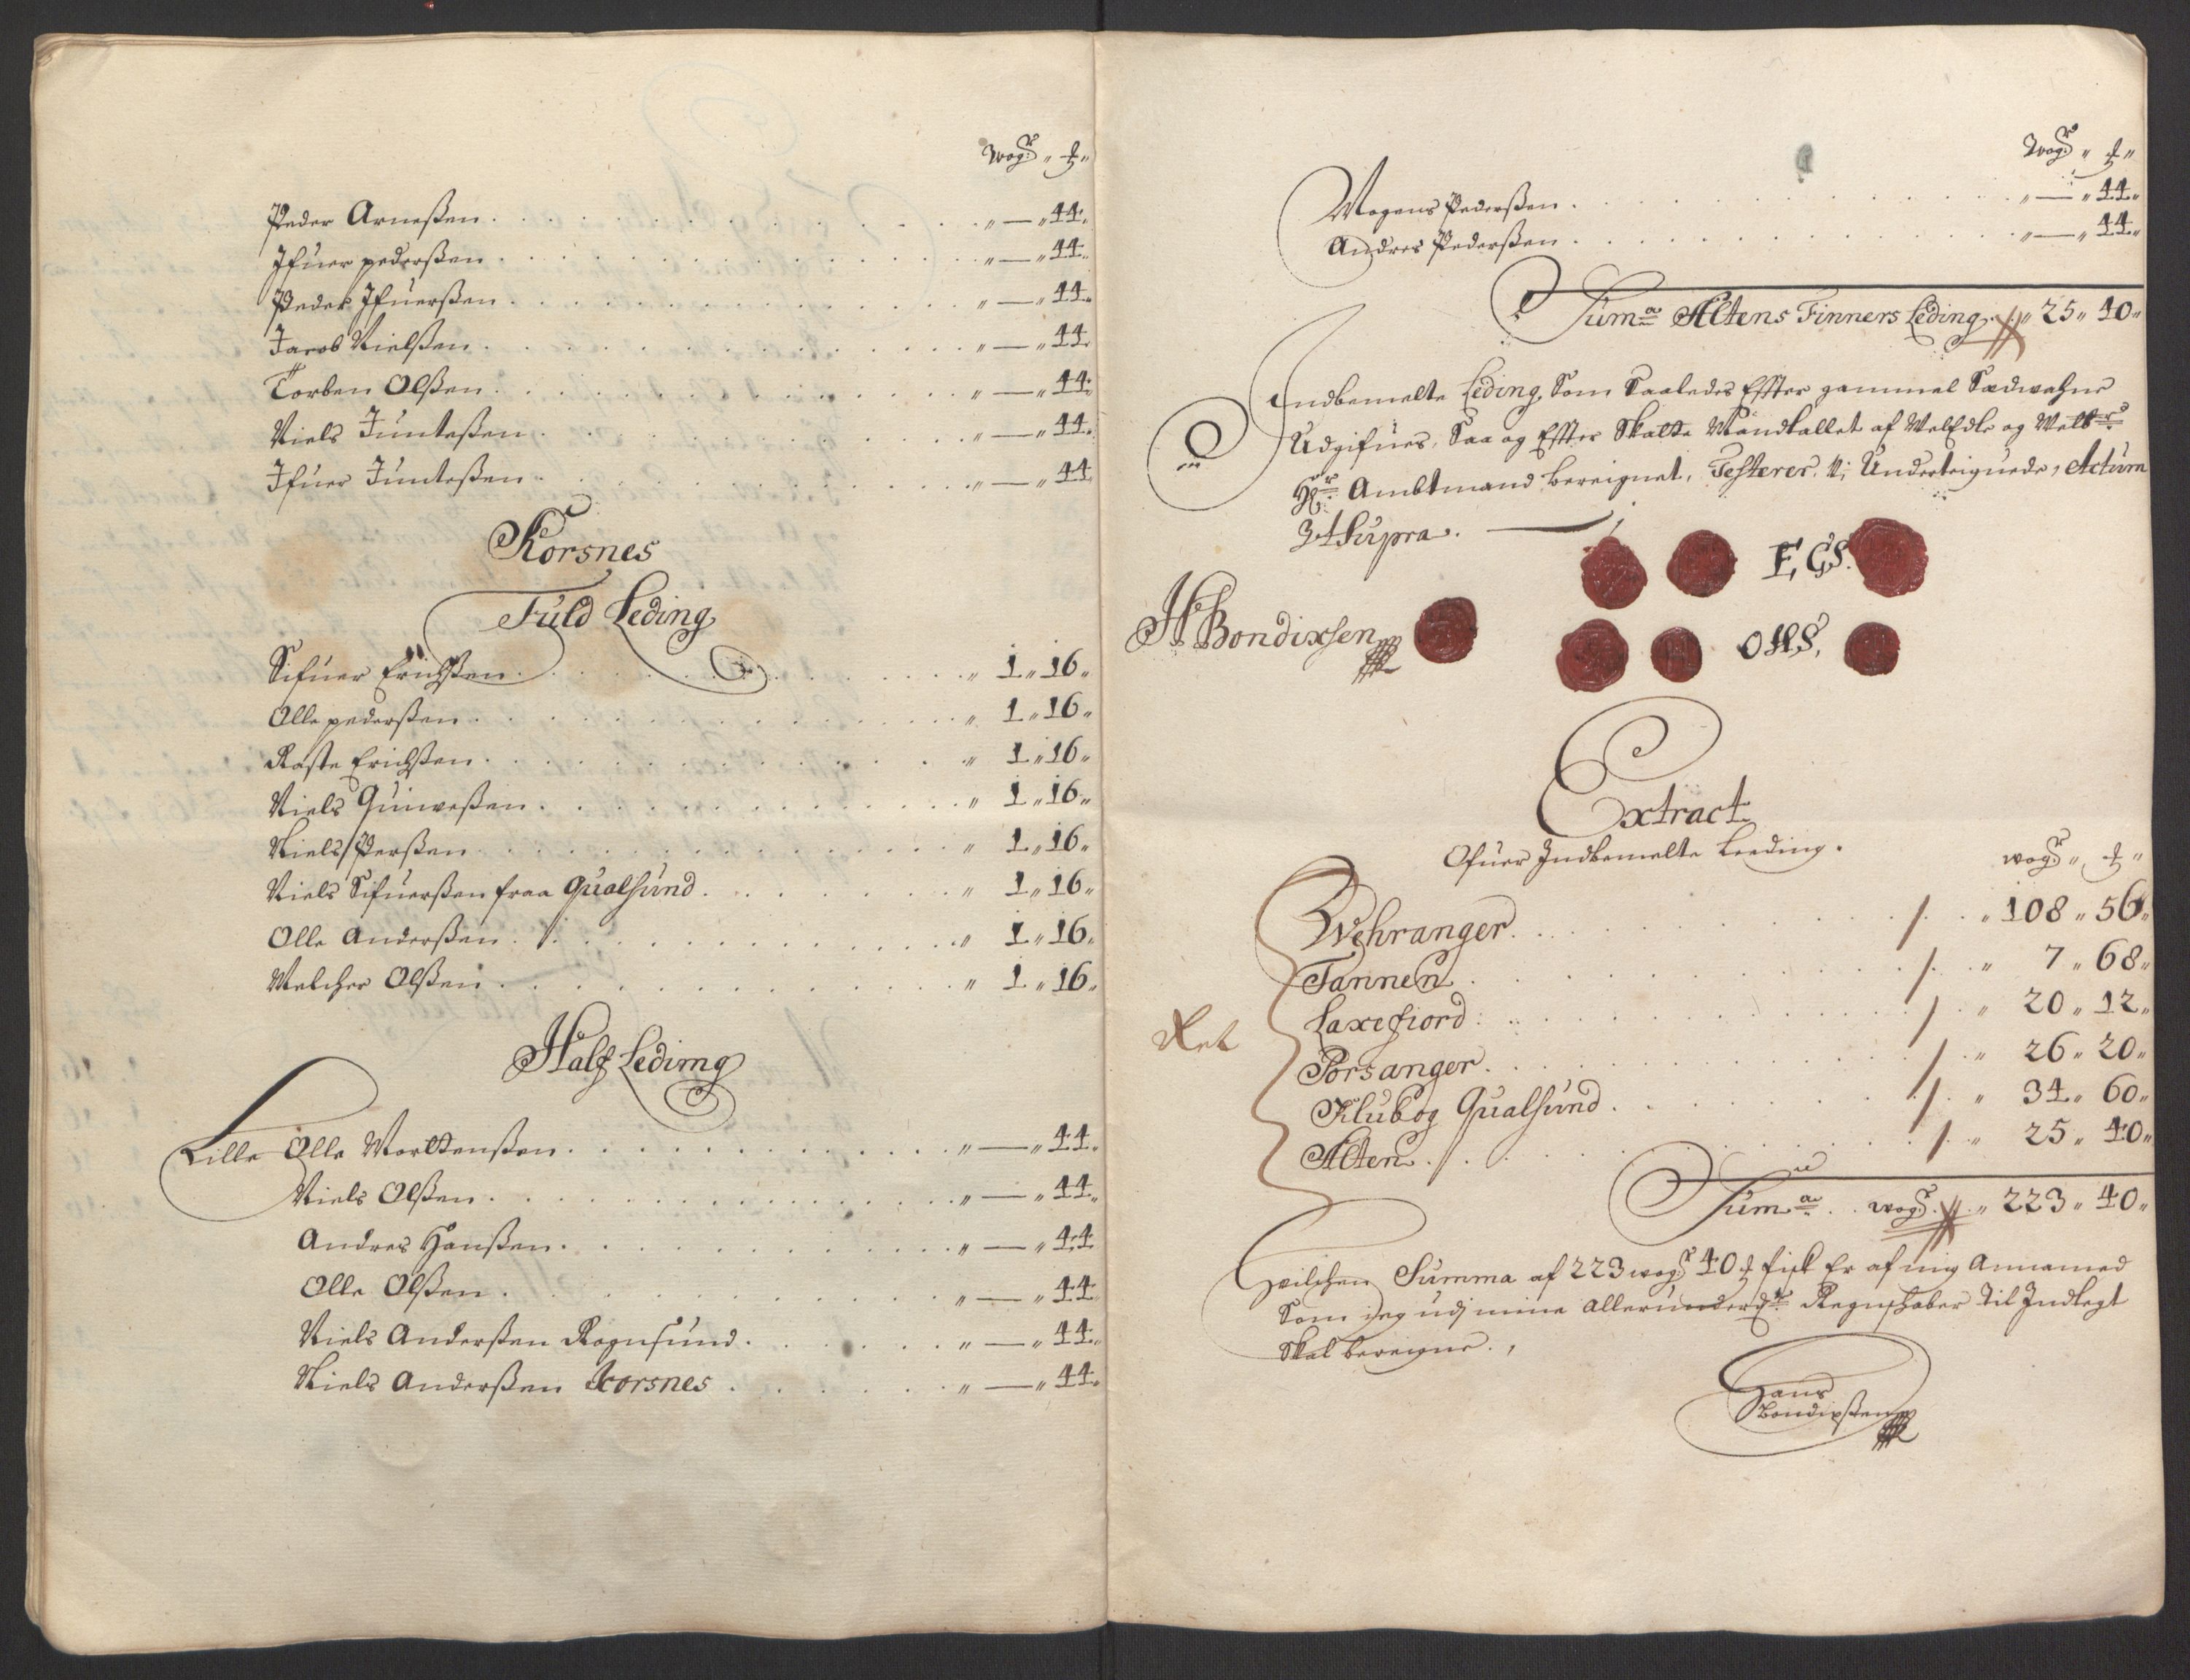 Wog:r „ ℔ „
Peder Arneßen . . . „ — „ 44 „
Ifuer pederßen . . . „ — „ 44 „
Peder Ifuerßen . . . „ — „ 44 „
Jacob Nielßen . . . „ — „ 44
Torben Olßen . . . „ — „ 44 „
Niels Junteßen . . . „ — „ 44 „
Ifuer Junteßen . . . „ — „ 44
Korsnes
Fuld Leding
Sifuer Erichßen . . . „ 1 „ 16 „
Olle pederßen . . . „ 1 „ 16 „
Raste Erichßen . . . „ 1 „ 16 „
Niels Quiweßen . . . „ 1 „ 16 „
Niels Perßen . . . „ 1 „ 16 „
Niels Sifuerßen fraa Qualsund . . . „ 1 „ 16 „
Olle Anderßen . . . „ 1 „ 16 „
Melcher Olßen . . . „ 1 „ 16 „
Half Leding
Lille Olle Mortenßen . . . „ — „ 44 „
Niels Olßen . . . „ — „ 44 „
Andres Hanßen . . . „ — „ 44
Olle Olßen . . . „ — „ 44
Niels Anderßen Rognsund . . . „ — „ 44 „
Niels Anderßen Korsnes . . . „ — „ 44 „
Wog:r „ ℔ „
Mogens Pederßen . . . „ — „ 44 „
Andres Pederßen . . . „ — „ 44 „
Suma Altens Finners Leding . . „ 25 „ 40 „
Indbemelte Leding, Som Saaledes Effter gammel Sædwahne
Udgifues, Saa og Effter Skatte Mandtallet af WelEdle og
Hr: Ambtmand bereignet, Testerer Vi Underteignede, Actum
Ut Supra.
E, G S.
H Bondixsen
O H S,
Extract
Ofuer Indbemelte Leeding.
wog:r „ ℔ „
Wehranger . . . „ 108 „ 56 „
Tannen . . . „ 7 „ 68 „
Laxefiord . . . „ 20 „ 12 „
Ret
Porsanger . . . „ 26 „ 20 „
Klub og Qualsund . . . „ 34 „ 60 „
Alten . . . „ 25 „ 40 „
Suma . . wog:r „ 223 „ 40 „
Hvilchen Summa af 223 wog:r 40 ℔ fisk Er af mig Annamed
Som ieg udj mine Allerunderd:te Regnschaber Til Indtegt
Skal bereigne. ,
Hans
Bondixßen